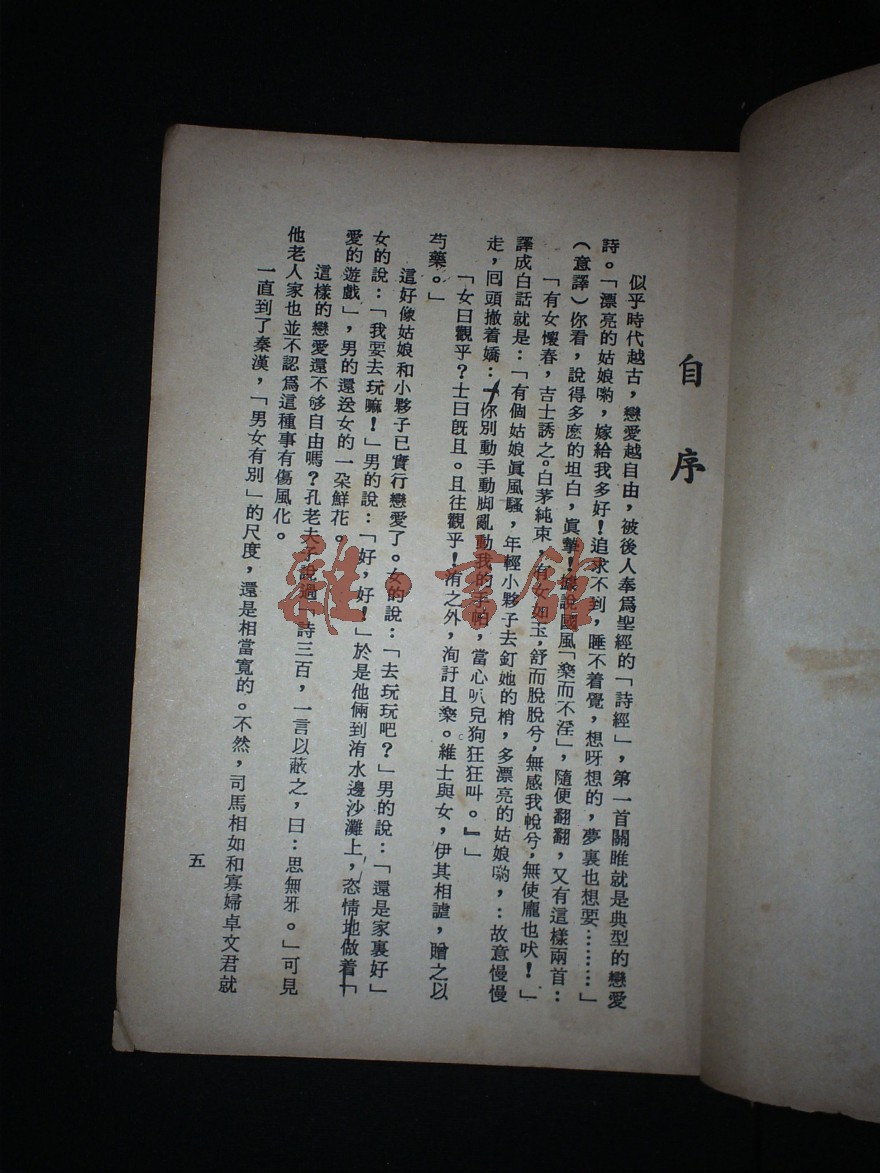 自序
似乎時代越古，戀愛越自由，被後人奉爲聖經的「詩經」，第一首關雎就是典型的戀愛
詩。「漂亮的姑娘喲，嫁給我多好！追求不到，睡不着覺，想呀想的，夢裏也想要………」
（意譯）你看，說得多麽的坦白，眞摯！據說國風「樂而不淫」，隨便翻翻，又有這樣兩首：
「有女懷春，吉士誘之。白茅純束，有女如玉，舒而脫脫兮，無感我帨兮，無使龐也吠！」
譯成白話就是：「有個姑娘眞風騷，年輕小夥子去釘她的梢，多漂亮的姑娘喲，：故意慢慢
走，囘頭撤着嬌：『你別動手動脚亂動我的手帕，當心叭兒狗狂狂叫。』」
「女曰觀乎？士曰旣且。且往觀乎！洧之外，洵訏且樂。維士與女，伊其相謔，贈之以
芍藥。」
這好像姑娘和小夥子已實行戀愛了。女的說：「去玩玩吧？」男的說：「還是家裏好」
女的說：「我要去玩嘛！」男的說：「好，好！」於是他倆到洧水邊沙灘上，恣情地做着「
愛的遊戲」，男的還送女的一朵鮮花。
這樣的戀愛還不够自由嗎？孔老夫子說過「詩三百，一言以蔽之，曰：思無邪。」可見
他老人家也並不認爲這種事有傷風化。
一直到了秦漢，「男女有別」的尺度，還是相當寬的。不然，司馬相如和寡婦卓文君就
五
雜·書館